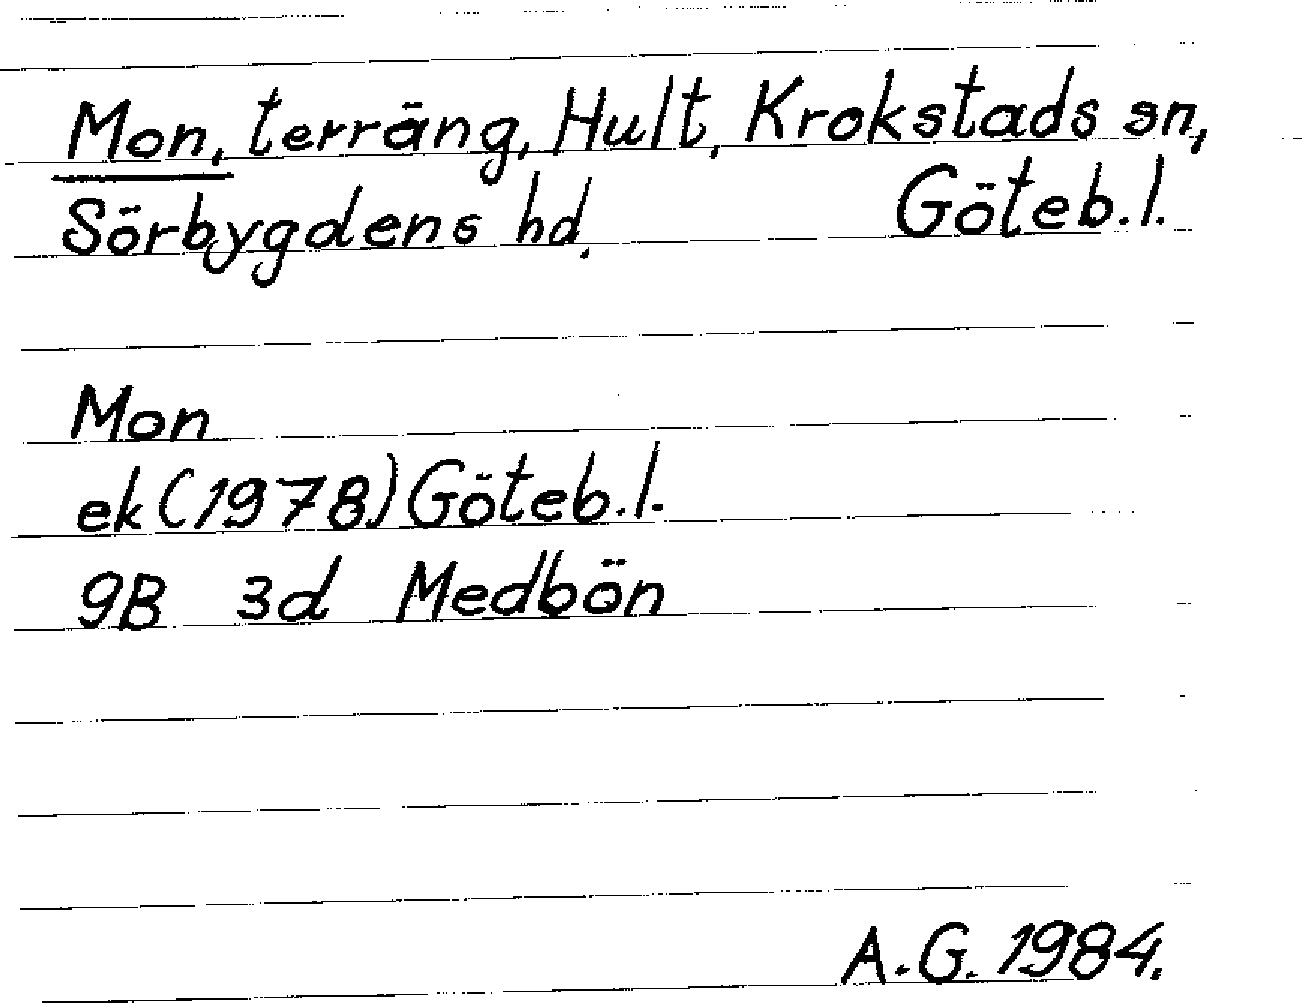 Mon, terräng, Hult, Krokstads sn,
Sörbygdens hd. Göteb.l.
Mon
ek (1978) Göteb.l.
9B 3d Medbön
A.G. 1984.